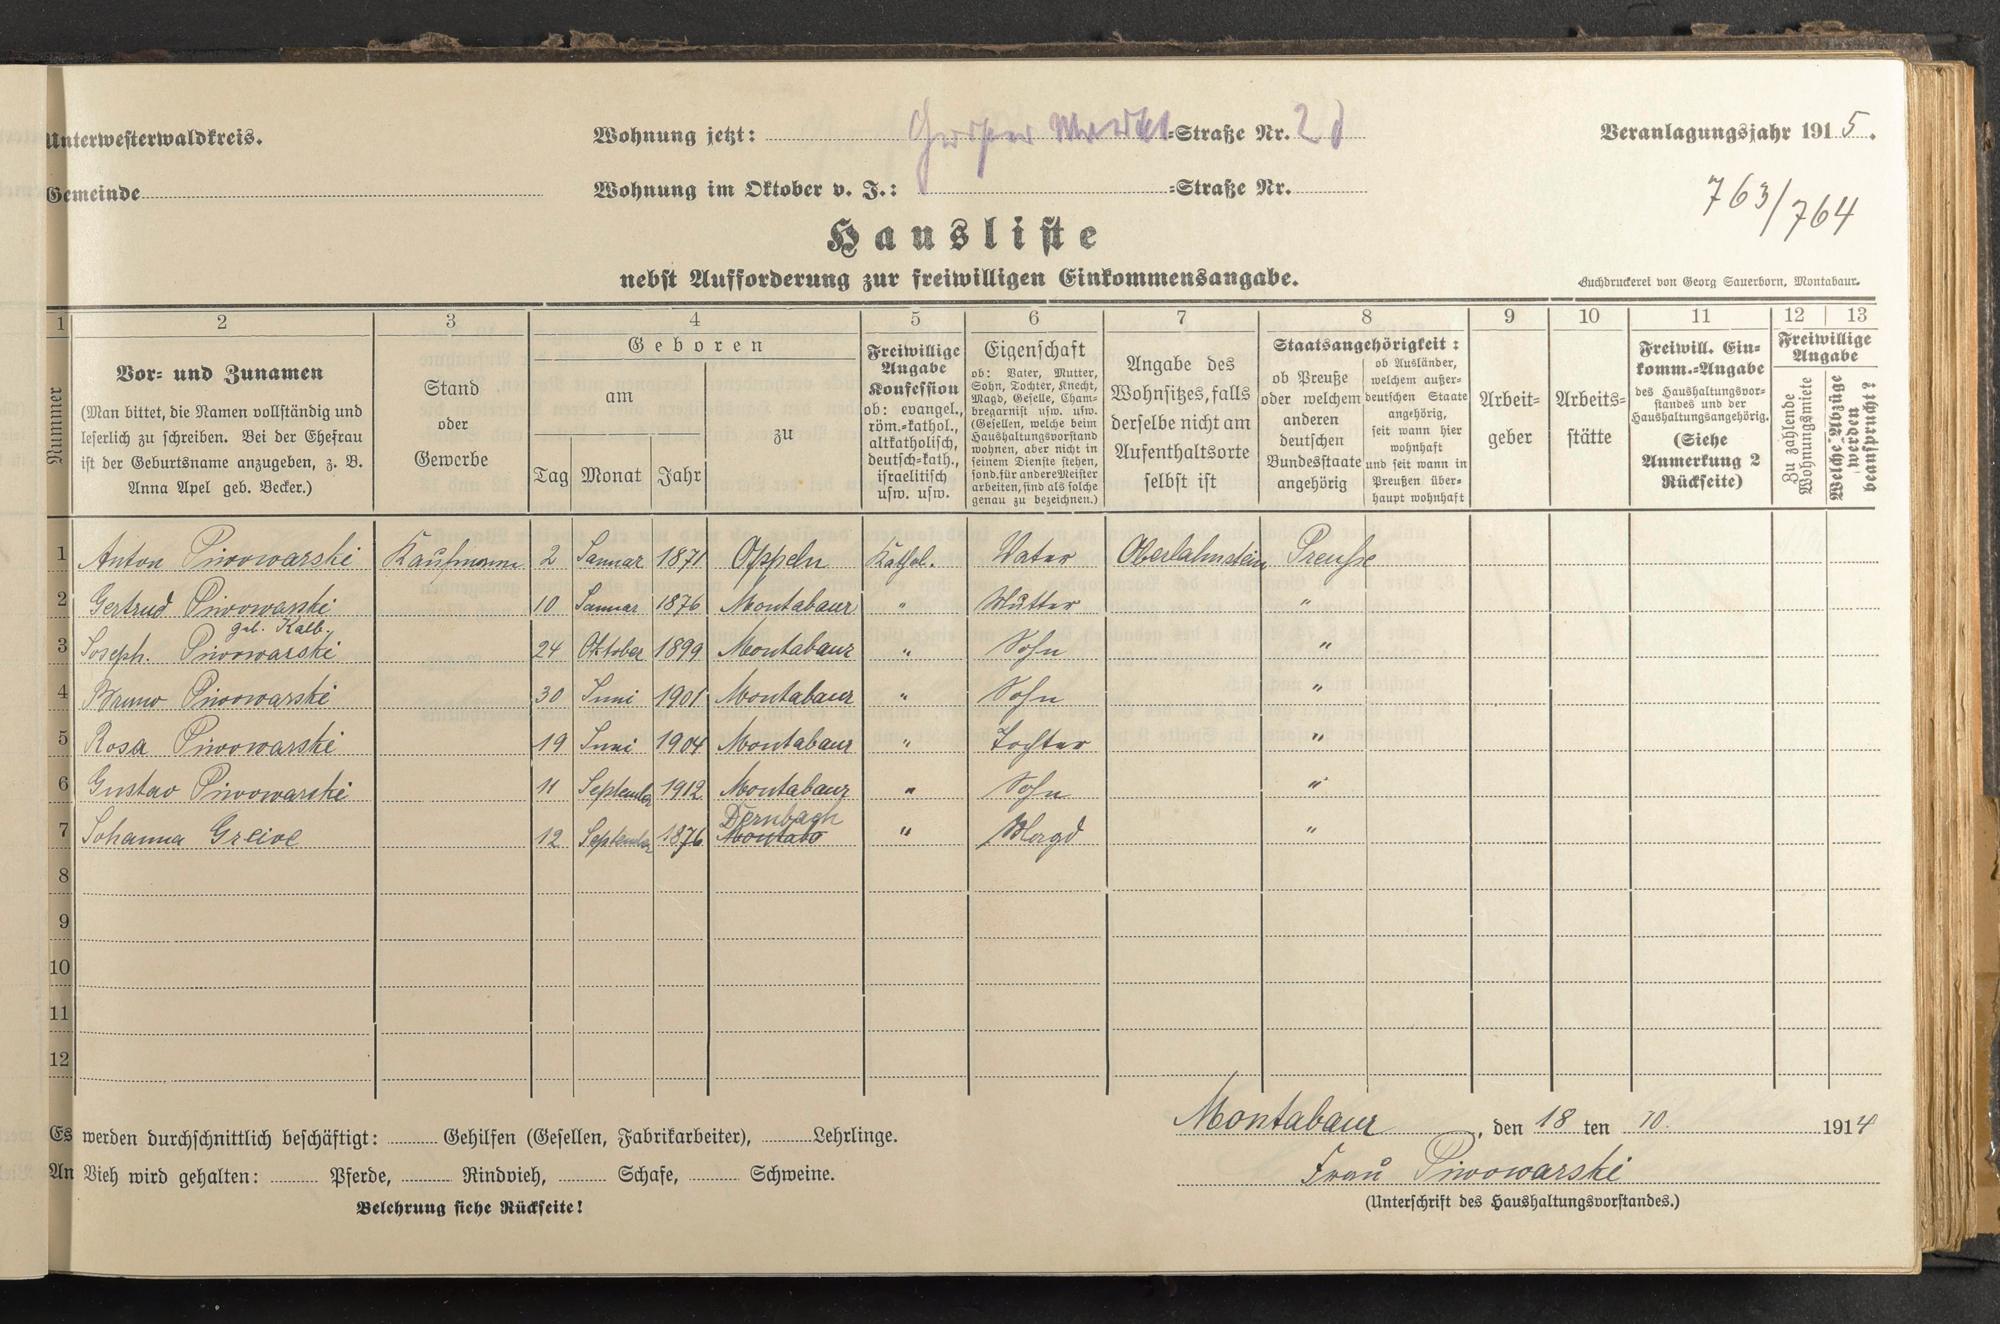 Unterwesterwaldkreis.
Wohnung jetzt: Großer Markt -Straße Nr. 28
Veranlagungsjahr 1915.
Gemeinde
Wohnung im Oktober v. J.: -Straße Nr.
763/764
Hausliste
nebst Aufforderung zur freiwilligen Einkommensangabe.
Buchdruckerei von Georg Sauerborn, Montabaur.
1 2 3 4 5 6 7 8 9 10 11 12 13
Nummer
Vor- und Zunamen
(Man bittet, die Namen vollständig und
leserlich zu schreiben. Bei der Ehefrau
ist der Geburtsname anzugeben, z. B.
Anna Apel geb. Becker.)
Stand
oder
Gewerbe
Geboren
am
Tag Monat Jahr
zu
Freiwillige
Angabe
Konfession
ob: evangel.,
röm.-kathol.,
altkatholisch,
deutsch-kath.,
israelitisch
usw. usw.
Eigenschaft
ob: Vater, Mutter,
Sohn, Tochter, Knecht,
Magd, Geselle, Cham-
bregarnist usw. usw.
(Gesellen, welche beim
Haushaltungsvorstand
wohnen, aber nicht in
seinem Dienste stehen,
sond. für andere Meister
arbeiten, sind als solche
genau zu bezeichnen.)
Angabe des
Wohnsitzes, falls
derselbe nicht am
Aufenthaltsorte
selbst ist
Staatsangehörigkeit:
ob Preuße
oder welchem
anderen
deutschen
Bundesstaate
angehörig
ob Ausländer,
welchem außer-
deutschen Staate
angehörig,
seit wann hier
wohnhaft
und seit wann in
Preußen über-
haupt wohnhaft
Arbeit-
geber
Arbeits-
stätte
Freiwill. Ein-
komm.-Angabe
des Haushaltungsvor-
standes und der
Haushaltungsangehörig.
(Siehe
Anmerkung 2
Rückseite)
Freiwillige
Angabe
Zu zahlende
Wohnungsmiete
Welche Abzüge
werden
beansprucht?
1 Anton Piwowarski Kaufmann 2 Januar 1871 Oppeln Kathol. Vater Oberlahnstein Preuße
2 Gertrud Piwowarski 10 Januar 1876 Montabaur " Mutter "
geb. Kalb.
3 Joseph. Piwowarski 24 Oktober 1899 Montabaur " Sohn "
4 Bruno Piwowarski 30 Juni 1901 Montabaur " Sohn "
5 Rosa Piwowarski 19 Juni 1904 Montabaur " Tochter "
6 Gustav Piwowarski 11 September 1912 Montabaur " Sohn "
Dernbach
7 Johanna Greive 12 September 1876 Montaba " Magd "
8
9
10
11
12
Montabaur, den 18 ten 10. 1914
Frau Piwowarski
(Unterschrift des Haushaltungsvorstandes.)
Es werden durchschnittlich beschäftigt: Gehilfen (Gesellen, Fabrikarbeiter), Lehrlinge.
An Vieh wird gehalten: Pferde, Rindvieh, Schafe, Schweine.
Belehrung siehe Rückseite!